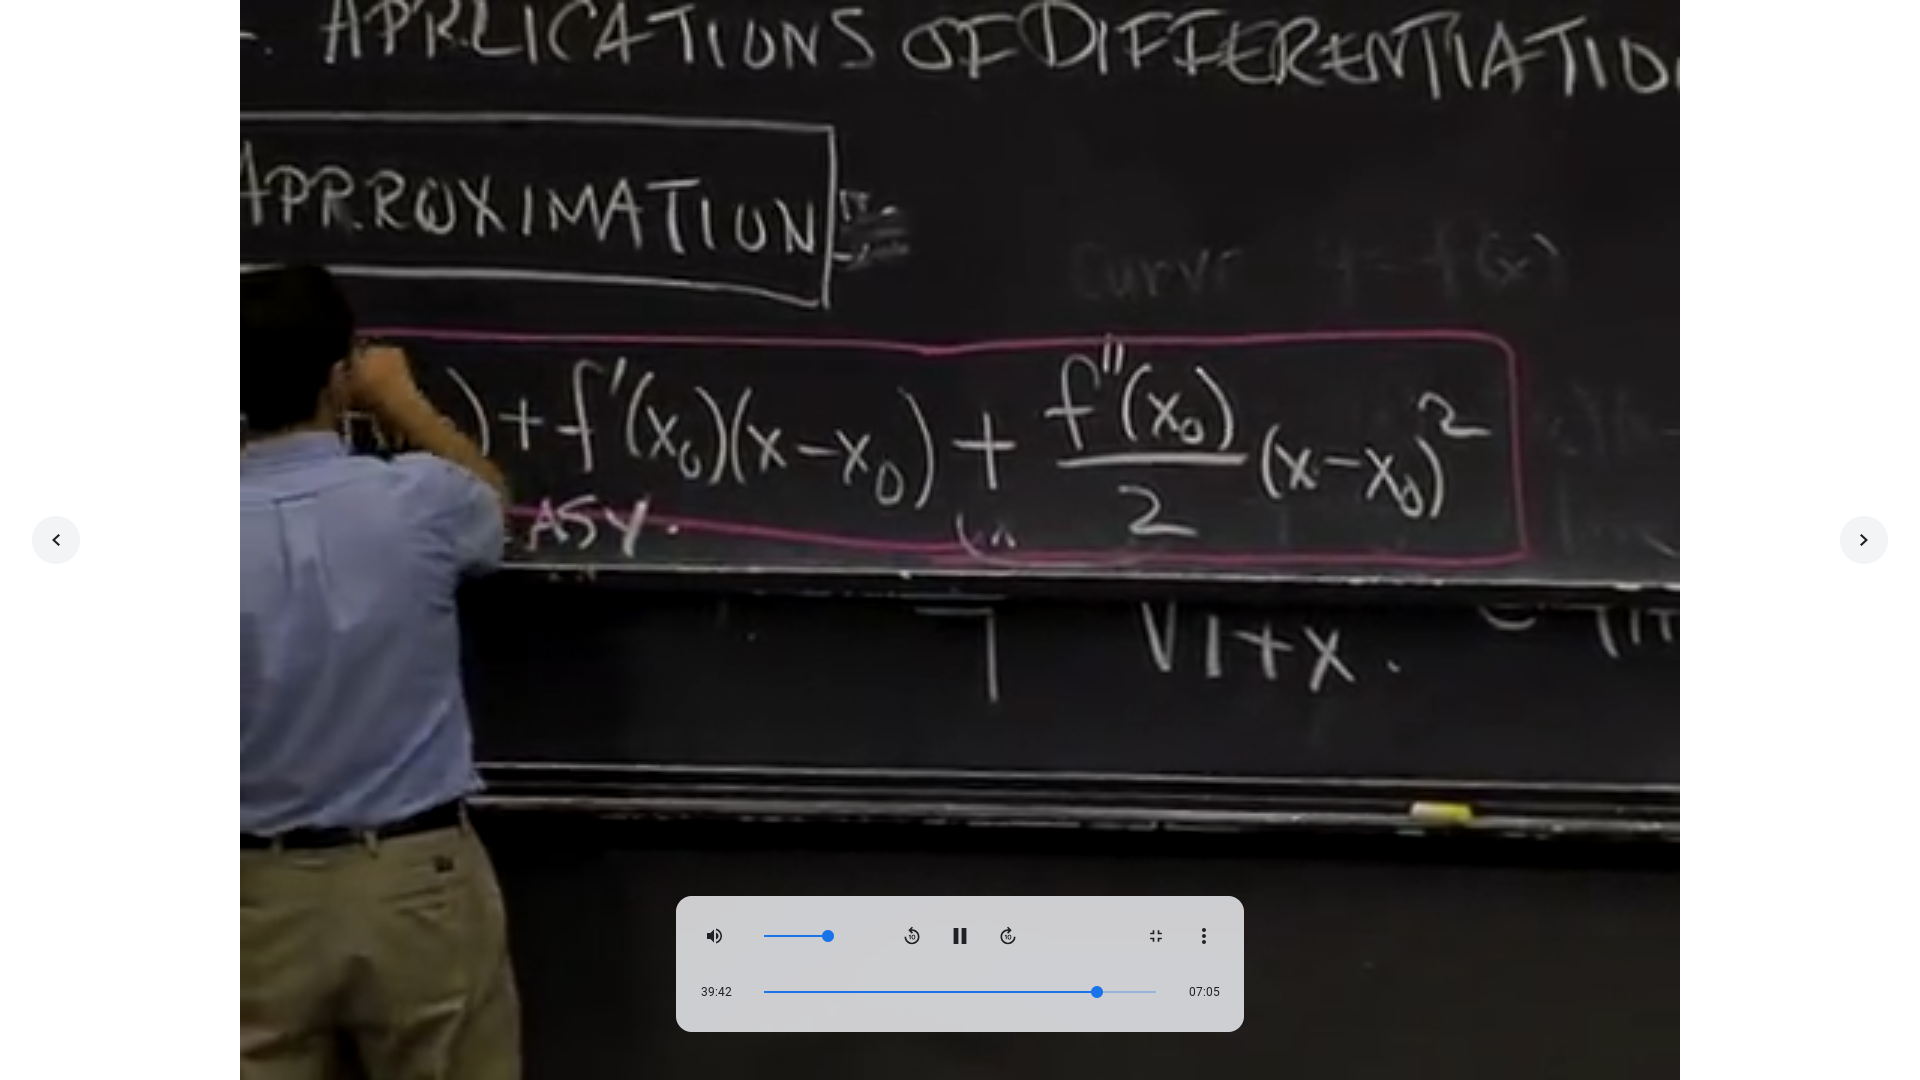 . APPLICATIONS OF DIFFERENTIATIO
APPROXIMATION
Curve y = f(x)
) + f'(x₀)(x-x₀) + f''(x₀)/2 (x-x₀)²
EASY.
√1+x.
39:42
07:05